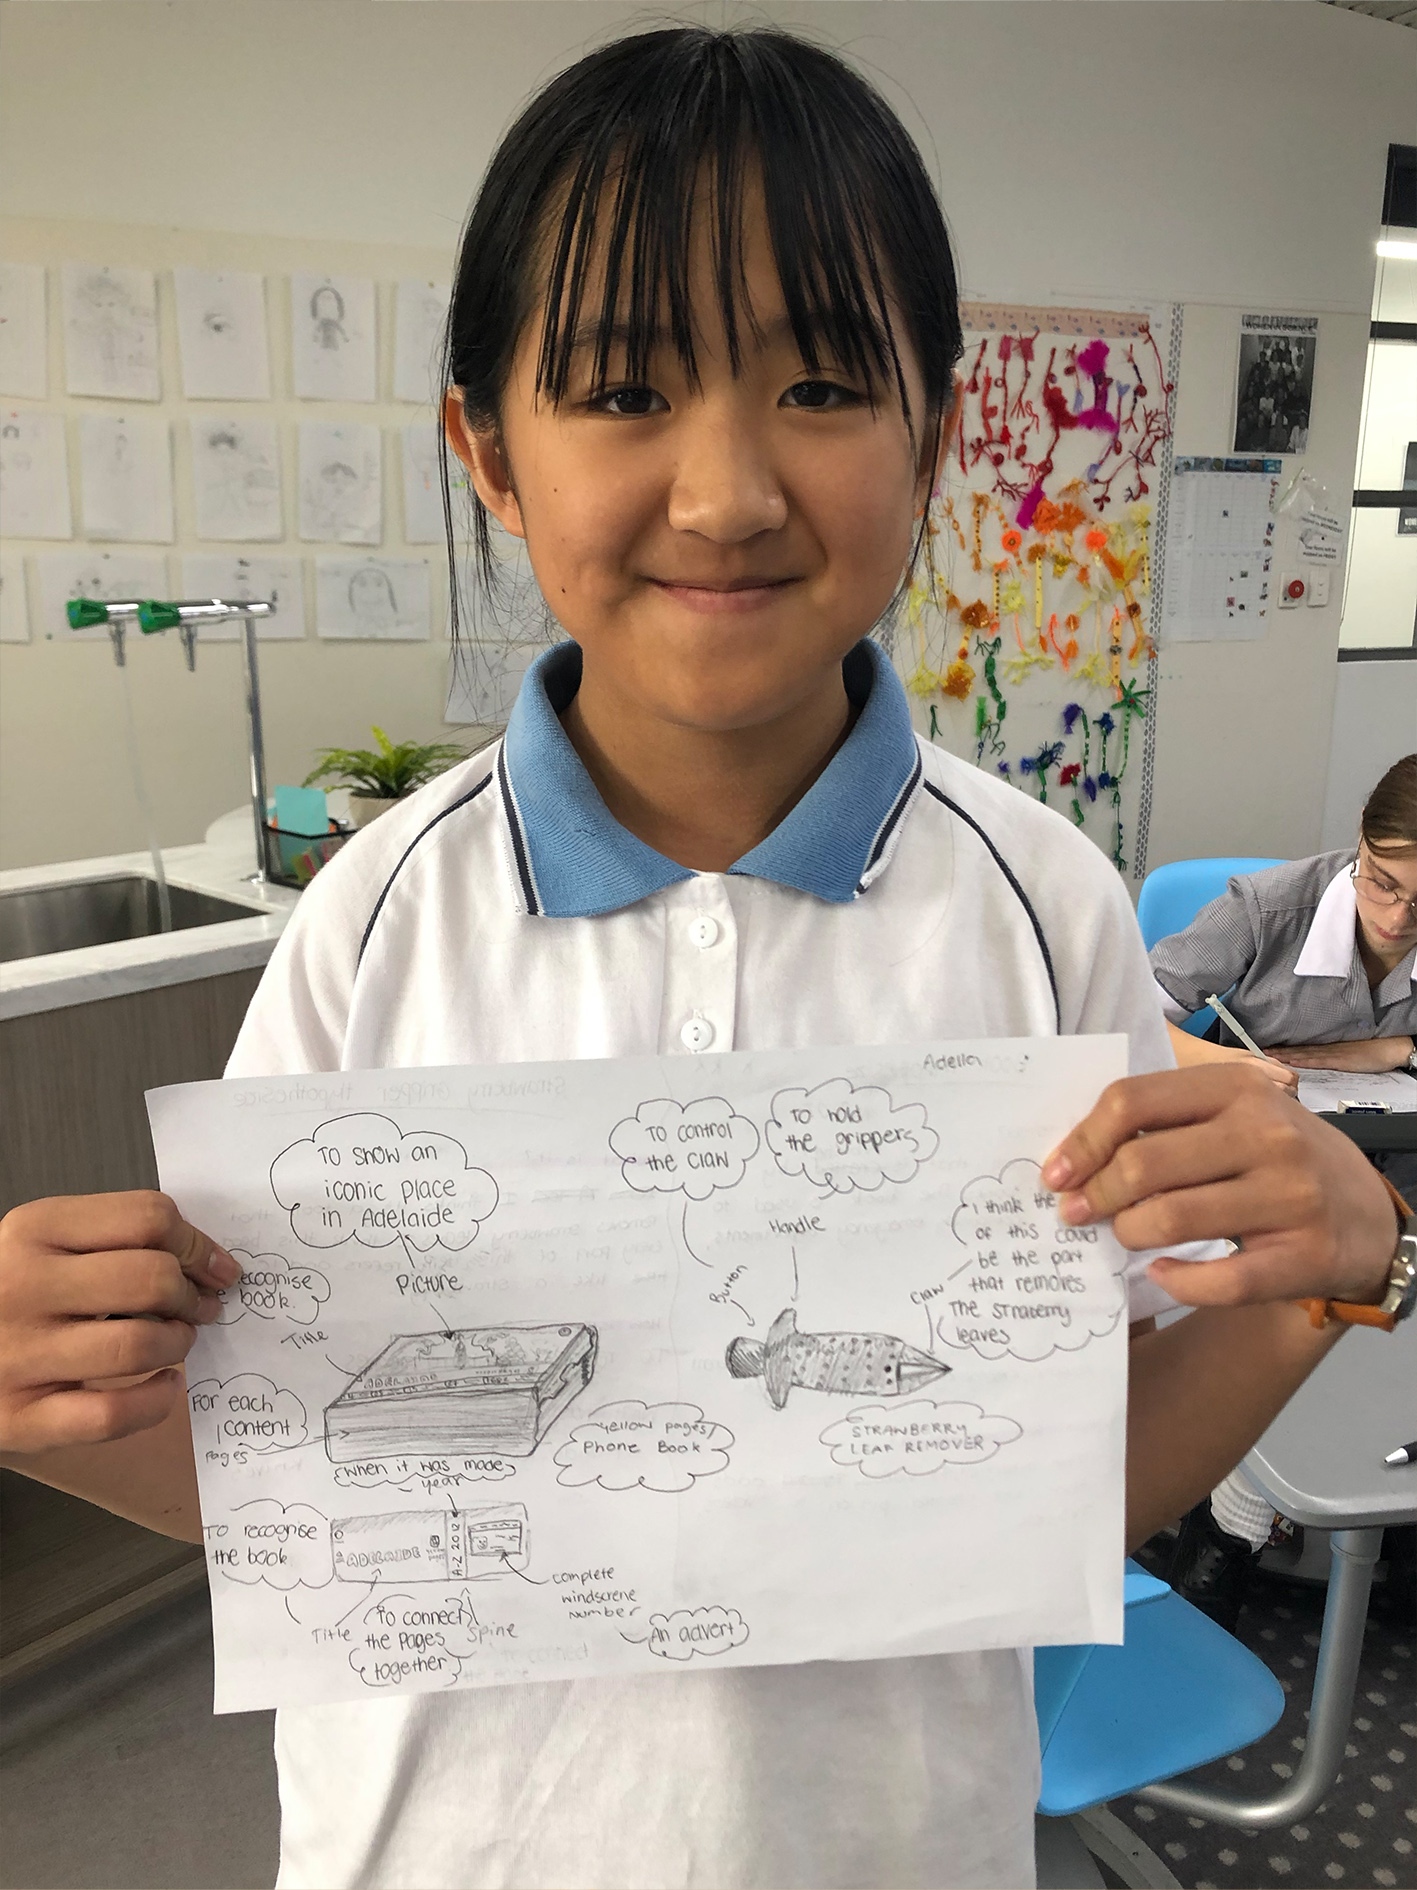 Adella
TO SHOW an
iconic place
in Adelaide
Picture
ecognise
book.
Title
For each
content
Pages
Yellow pages/
Phone Book
When it was made
year
TO recognise
the book
ADELAIDE
A-Z 2012
Title
To connect
the Pages
together
Spine
complete
windscrene
number
An advert
To control
the claw
To hold
the grippers
Button
Handle
Claw
I think the
of this could
be the part
that removes
The straberry
leaves
STRAWBERRY
LEAF REMOVER
WOMEN IN SCIENCE